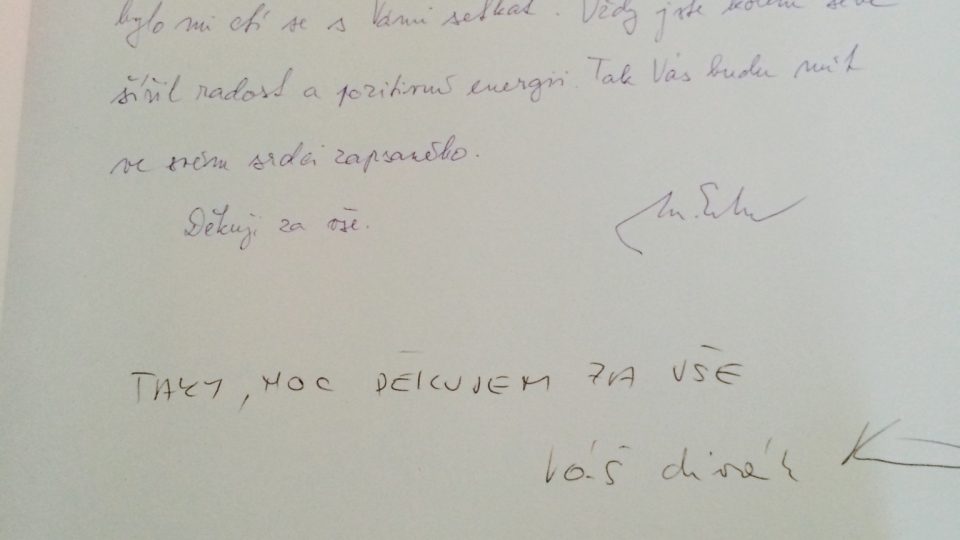 bylo mi ctí se s Vámi setkat. Vždy jste kolem sebe
šířil radost a pozitivní energii. Tak Vás budu mít
ve svém srdci zapsaného.
Děkuji za vše.
TAKY, MOC DĚKUJEM ZA VŠE
Váš divák